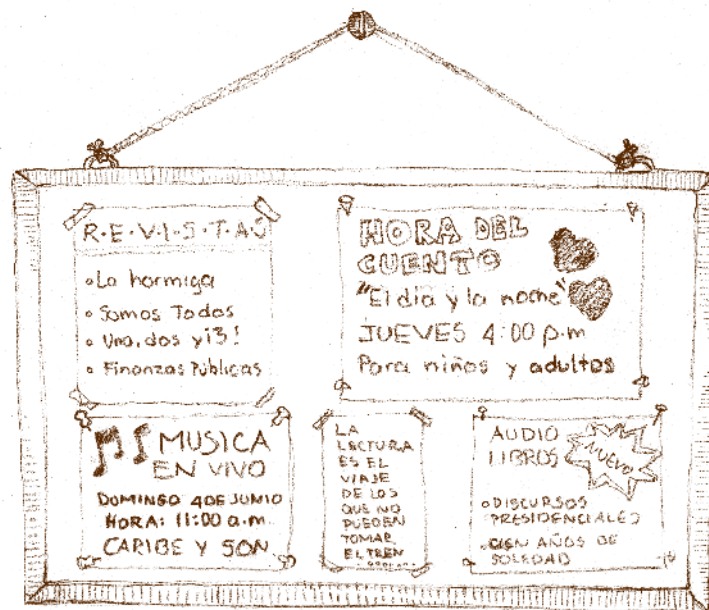 R·E·V·I·S·T·A·S
• La hormiga
• Somos Todos
• Uno, dos y ¡3!
• Finanzas Públicas
HORA DEL
CUENTO
"El día y la noche"
JUEVES 4:00 p.m
Para niños y adultos
MUSICA
EN VIVO
DOMINGO 4 DE JUNIO
HORA: 11:00 a.m.
CARIBE Y SON
LA
LECTURA
ES EL
VIAJE
DE LOS
QUE NO
PUEDEN
TOMAR
EL TREN
AUDIO
LIBROS
NUEVO
• DISCURSOS
PRESIDENCIALES
• CIEN AÑOS DE
SOLEDAD